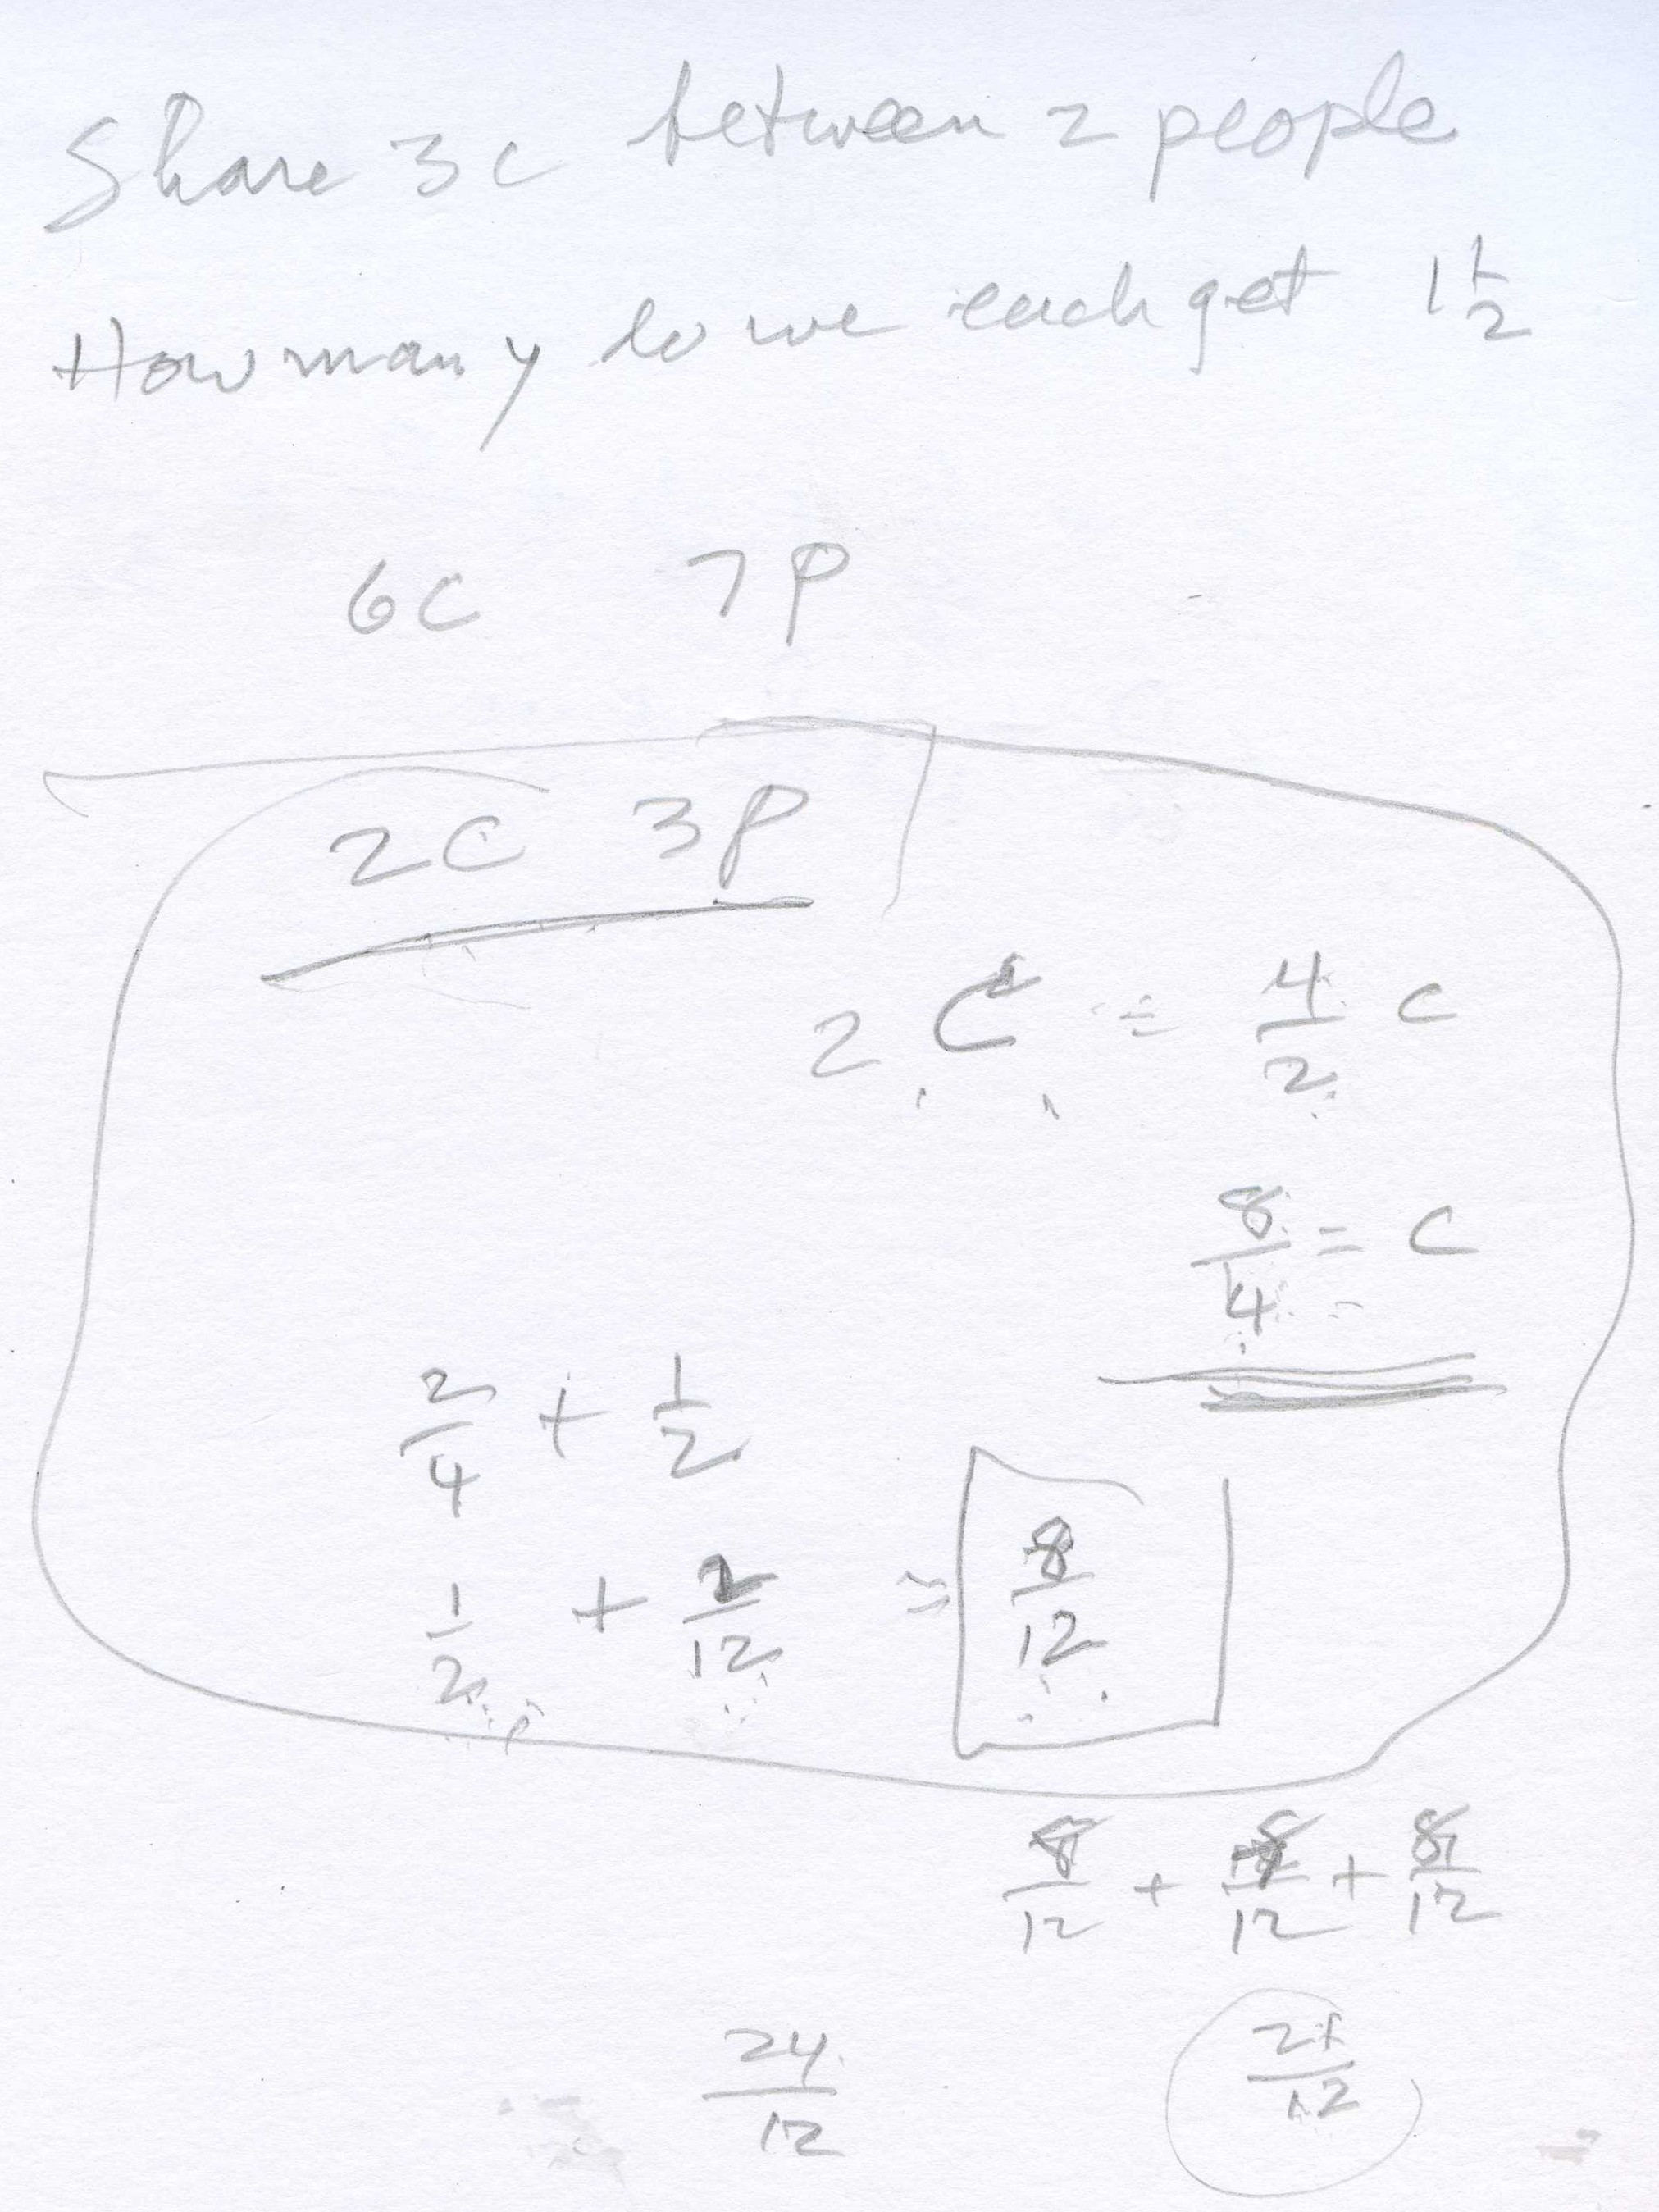 Share 3c between 2 people
How many do we each get 1 1/2
6C 7P
2C 3P
2 C = 4/2 C
8/4 = C
2/4 + 1/2
1/2 + 2/12 = 8/12
8/12 + 8/12 + 8/12
24/12 24/12